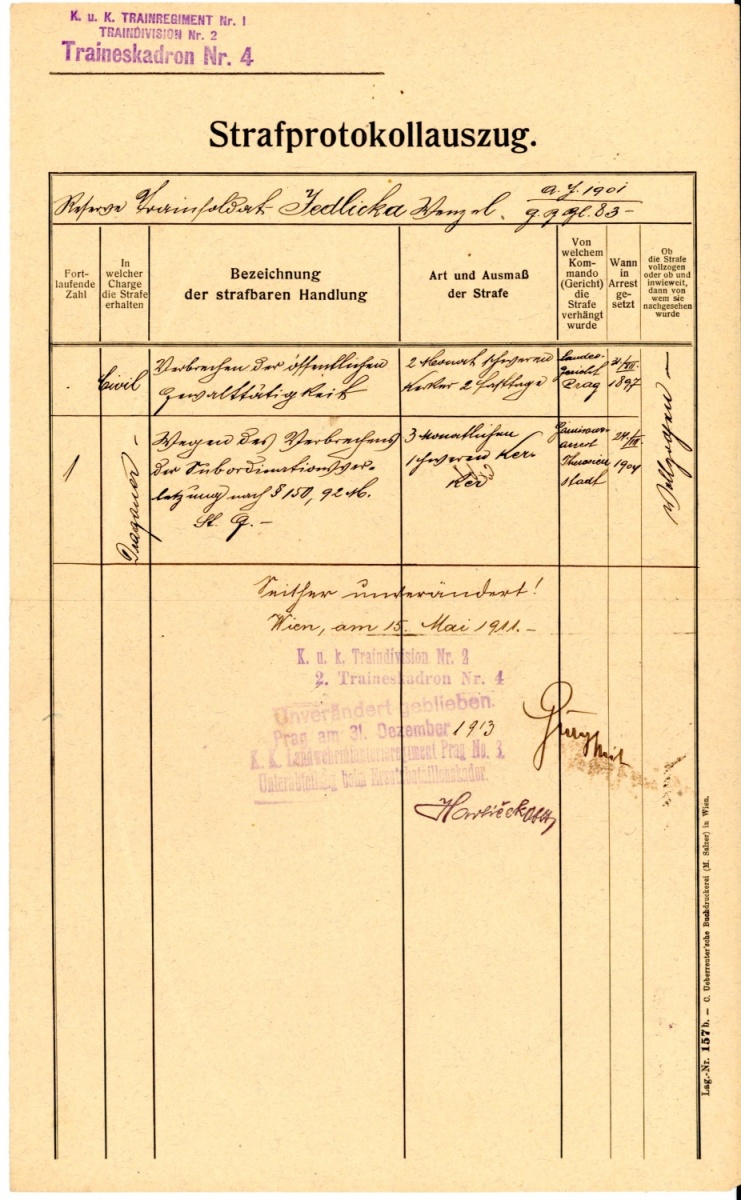 K. u. K. TRAINREGIMENT Nr. 1
TRAINDIVISION Nr. 2
Traineskadron Nr. 4
Strafprotokollauszug.
Reserve Trainsoldat Jedlicka Wenzel.
A. J. 1901
g. g. gl. 83 –
Fort-
laufende
Zahl
In
welcher
Charge
die Strafe
erhalten
Bezeichnung
der strafbaren Handlung
Art und Ausmaß
der Strafe
Von
welchem
Kom-
mando
(Gericht)
die
Strafe
verhängt
wurde
Wann
in
Arrest
ge-
setzt
Ob
die Strafe
vollzogen
oder ob und
inwieweit,
dann von
wem sie
nachgesehen
wurde
Civil
Verbrechen der öffentlichen
Gewalttätigkeit
2 Monat schweren
Kerker 2 Fasttage
Landes-
gericht
Prag
1897
1
Dragoner –
Wegen des Verbrechens
der Subordinationsver-
letzung nach § 150, 92 M.
St. G. –
3 Monatlichen
schweren Ker-
ker
Garnisons-
arrest
Theresien
stadt
24./III.
1904
Vollzogen –
Seither unverändert!
Wien, am 15. Mai 1911. –
K. u. k. Traindivision Nr. 2
2. Traineskadron Nr. 4
Unverändert geblieben.
Prag am 31. Dezember 1913
K. K. Landwehrinfanterieregiment Prag No. 8.
Unterabteilung beim Ersatzbataillonskader.
Havlíček Oblt
Lag.-Nr. 157 b. — C. Ueberreuter'sche Buchdruckerei (M. Salzer) in Wien.